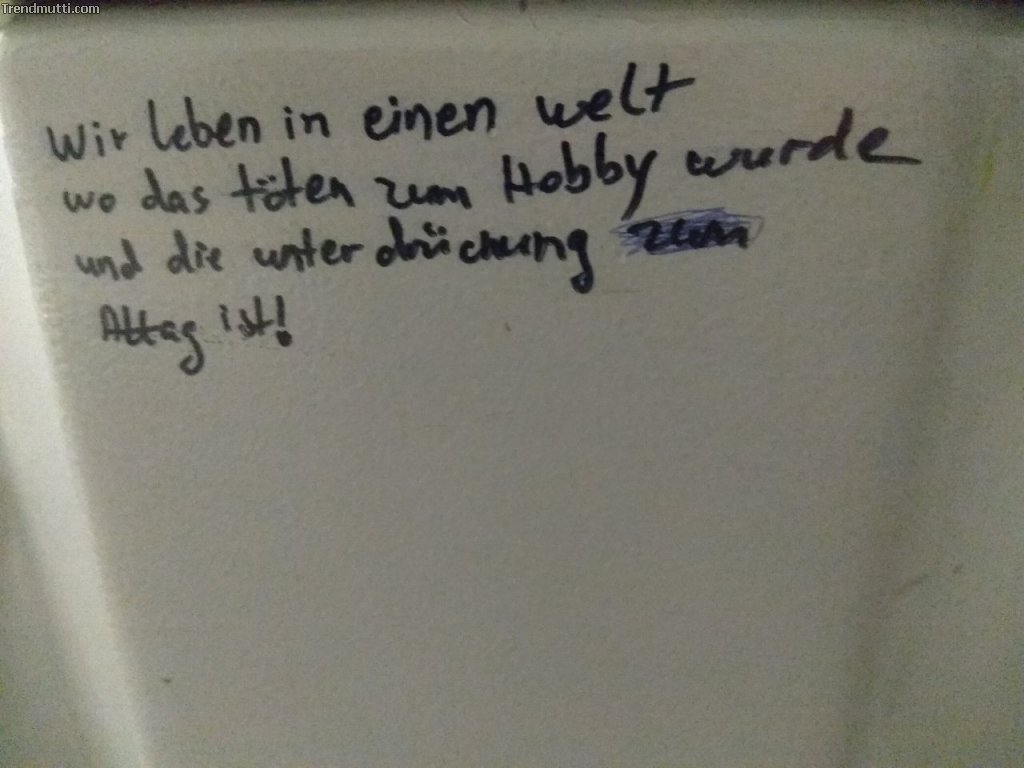 Trendmutti.com
Wir leben in einen welt
wo das töten zum Hobby wurde
und die unterdrückung zum
Alttag ist!